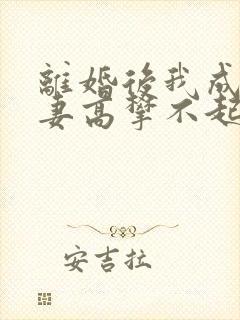 離婚後我成
妻高攀不起
安吉拉